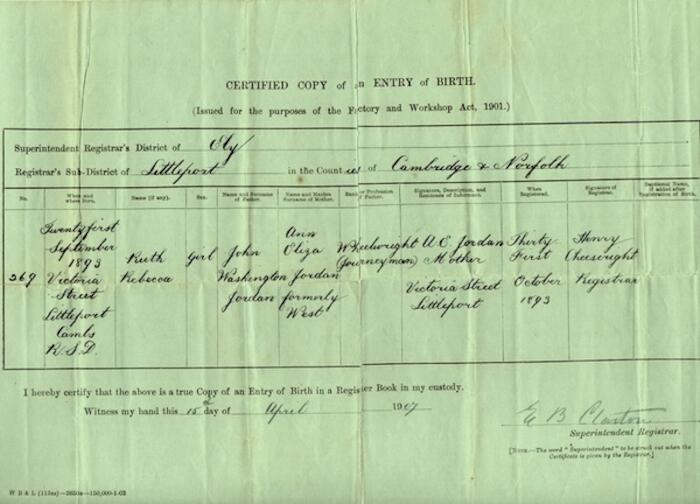 CERTIFIED COPY of an ENTRY of BIRTH.
(Issued for the purposes of the Factory and Workshop Act, 1901.)
Superintendent Registrar's District of Ely
Registrar's Sub-District of Littleport in the Counties of Cambridge & Norfolk
No. When and where Born. Name (if any). Sex. Name and Surname of Father. Name and Maiden Surname of Mother. Rank or Profession of Father. Signature, Description, and Residence of Informant. When Registered. Signature of Registrar. Baptismal Name, if added after Registration of Birth.
Twenty first Ann
September Eliza Wheelwright A. E. Jordan Thirty Henry
1893 Ruth Girl John (Journeyman) Mother First Cheesewright
269 Victoria Rebecca Washington Jordan Victoria Street October Registrar
Street Jordan formerly Littleport 1893
Littleport West
Cambs
R.S.D.
I hereby certify that the above is a true Copy of an Entry of Birth in a Register Book in my custody.
Witness my hand this 15th day of April 1907
E B Claxton
Superintendent Registrar.
[NOTE.—The word "Superintendent" to be struck out when the Certificate is given by the Registrar.]
W B & L (113m)—2650a—150,000-1-03